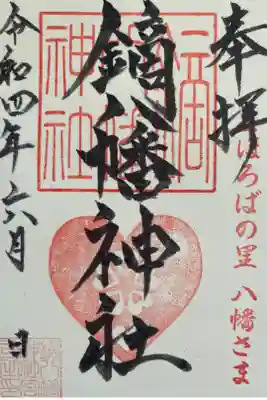 奉拝
ほろばの里 八幡さま
鏑八幡神社
神社
令和四年六月 日